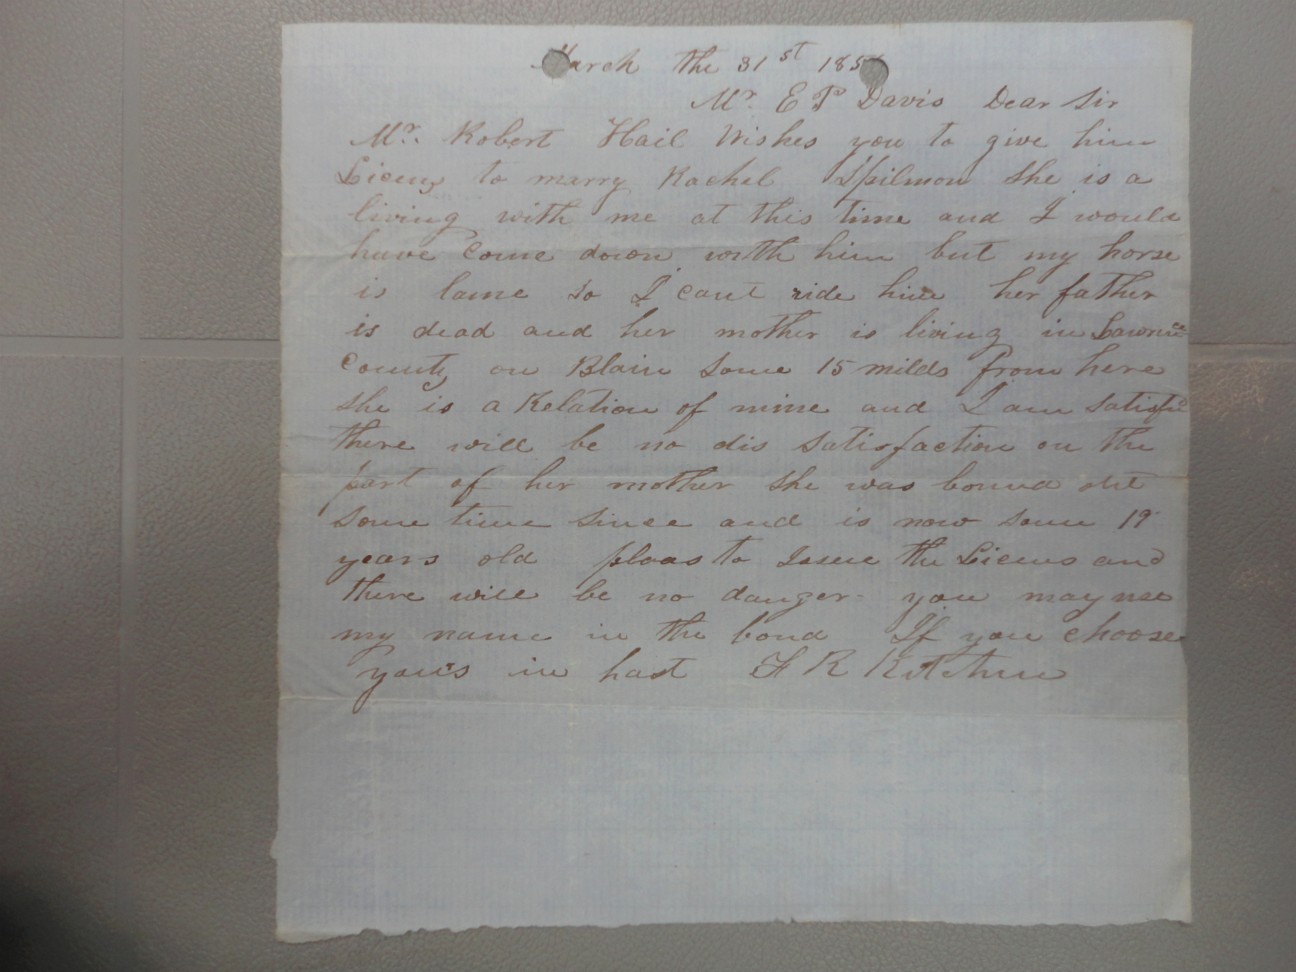 March the 31st 185
Mr. E P Davis Dear Sir
Mr. Robert Hail Wishes you to give him
Licens to marry Rachel Spilmon She is a
living with me at this time and I would
have Come down with him but my horse
is lame So I cant ride him her father
is dead and her mother is living in Lawrnce
County on Blain Some 15 milds from here
She is a Relation of mine and I am Satisfid
there will be no dis Satisfaction on the
part of her mother She was bound out
Some time Since and is now Some 19
years old pleas to Issue the Licens and
there will be no danger you may use
my name in the bond If you choose
yours in hast R Kitchen